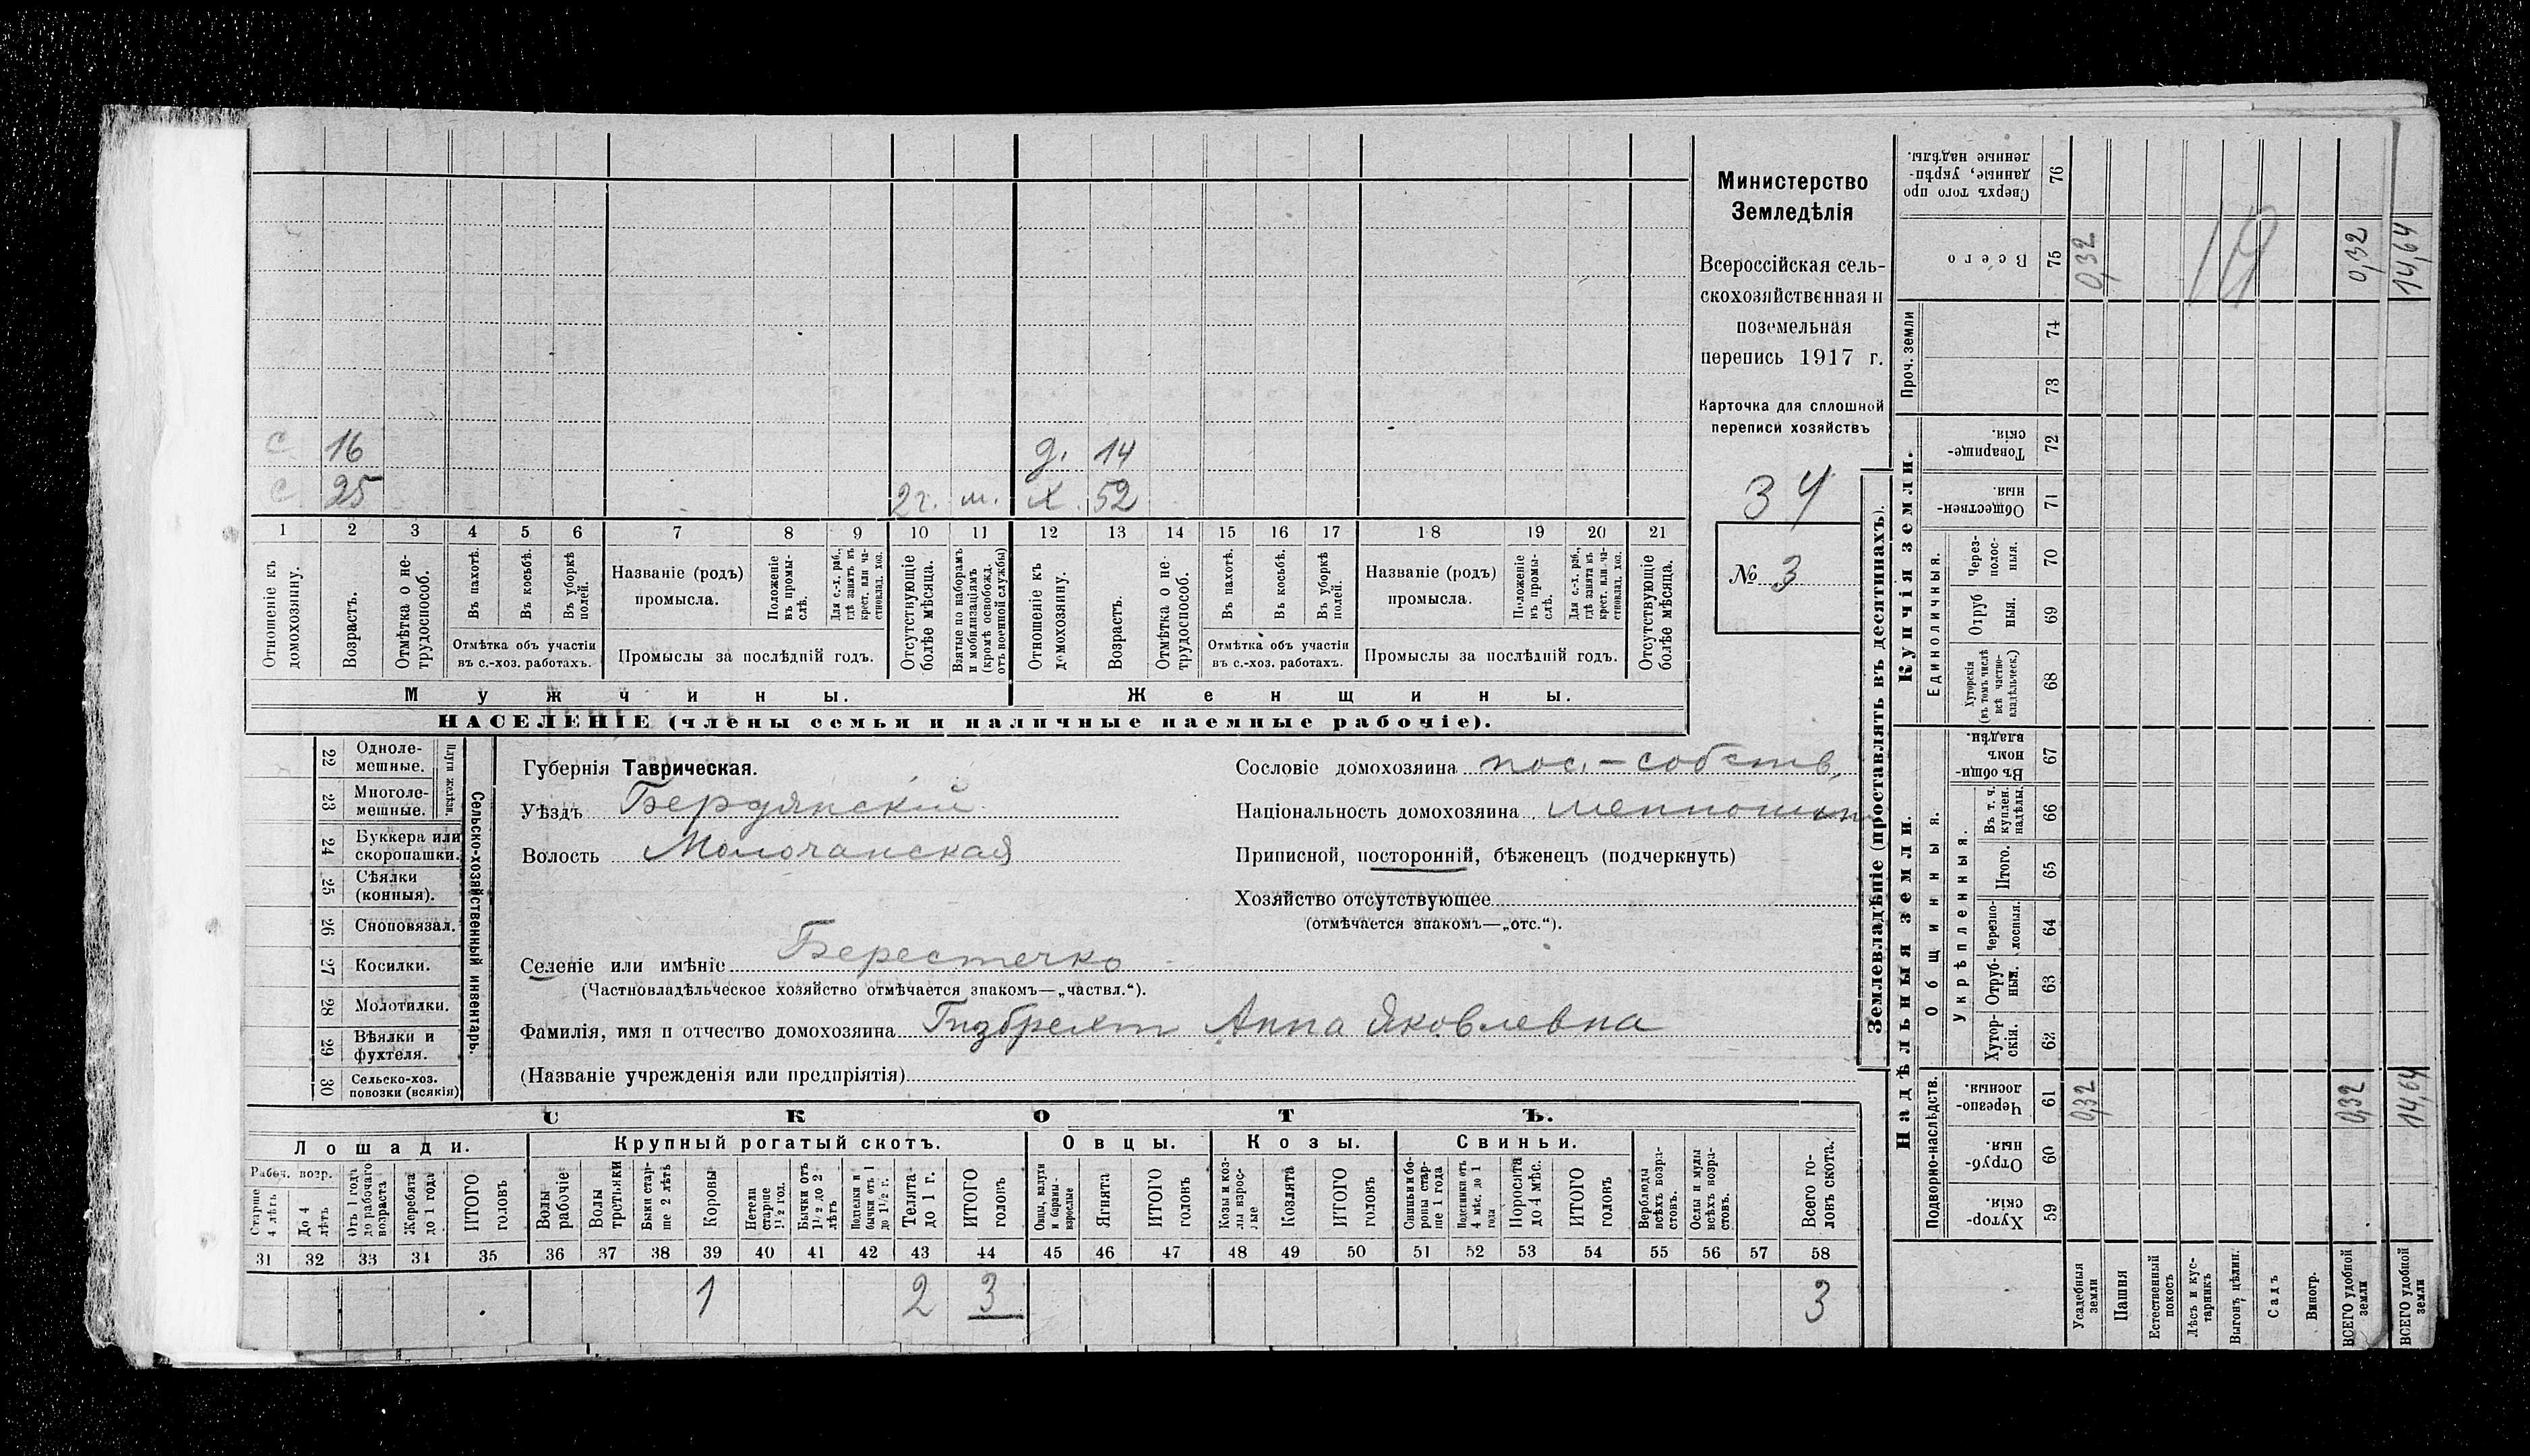 с 16 д. 14
с 25 2 г. м. х. 52
1 2 3 4 5 6 7 8 9 10 11 12 13 14 15 16 17 18 19 20 21
Отношеніе къ домохозяину.
Возрастъ.
Отмѣтка о не-
трудоспособ.
Въ пахотѣ.
Въ косьбѣ.
Въ уборкѣ полей.
Отмѣтка объ участіи
въ с.-хоз. работахъ.
Названіе (родъ)
промысла.
Положеніе
въ промы-
слѣ.
Для с.-х. раб.,
гдѣ занятъ въ
крест. или ча-
стновлад. хоз.
Промыслы за послѣдній годъ.
Отсутствующіе
болѣе мѣсяца.
Взятые по наборамъ
и мобилизаціямъ
(кромѣ освобожд.
отъ военной службы)
Отношеніе къ
домохозяину.
Возрастъ.
Отмѣтка о не
трудоспособ.
Въ пахотѣ.
Въ косьбѣ.
Въ уборкѣ
полей.
Отмѣтка объ участіи
въ с.-хоз. работахъ.
Названіе (родъ)
промысла.
Положеніе
въ промы-
слѣ.
Для с.-х. раб.,
гдѣ занята въ
крест. или ча-
стновлад. хоз.
Промыслы за послѣдній годъ.
Отсутствующіе
болѣе мѣсяца.
Мужчины.
Женщины.
НАСЕЛЕНІЕ (члены семьи и наличные наемные рабочіе).
Министерство
Земледѣлія
Всероссійская сель-
скохозяйственная и
поземельная
перепись 1917 г.
Карточка для сплошной
переписи хозяйствъ
34
№ 3
22 Одноле-
мешные.
23 Многоле-
мешные.
Плуги желѣзн.
24 Буккера или
скоропашки.
25 Сѣялки
(конныя).
26 Сноповязал.
27 Косилки.
28 Молотилки.
29 Вѣялки и
фухтеля.
30 Сельско-хоз.
повозки (всякія)
Сельско-хозяйственный инвентарь.
Губернія Таврическая.
Уѣздъ Бердянскій
Волость Молочанская
Селеніе или имѣніе Берестечко
(Частновладѣльческое хозяйство отмѣчается знакомъ—„частвл.“).
Фамилія, имя и отчество домохозяина Гизбрехт Анна Яковлевна
(Названіе учрежденія или предпріятія)
Сословіе домохозяина пос.-собств.
Національность домохозяина меннонит
Приписной, посторонній, бѣженецъ (подчеркнуть)
Хозяйство отсутствующее
(отмѣчается знакомъ—„отс.“).
СКОТЪ.
Лошади. Крупный рогатый скотъ. Овцы. Козы. Свиньи.
Рабоч. возр.
Старше
4 лѣтъ
До 4
лѣтъ
Отъ 1 года
до рабочаго
возраста
Жеребята
до 1 года
ИТОГО
головъ
Волы
рабочіе
Волы
третьяки
Быки стар-
ше 2 лѣтъ
Коровы
Нетели
старше
1½ год.
Бычки отъ
1½ до 2
лѣтъ
Подтелки и
бычки отъ 1
до 1½ г.
Телята
до 1 г.
ИТОГО
головъ
Овцы, валухи
и бараны-
взрослые
Ягнята
ИТОГО
головъ
Козы и коз-
лы взрос-
лые
Козлята
ИТОГО
головъ
Свиньи и бо-
ровы стар-
ше 1 года
Подсвинки отъ
4 мѣс. до 1
года
Поросята
до 4 мѣс.
ИТОГО
головъ
Верблюды
всѣхъ возра-
стовъ.
Ослы и мулы
всѣхъ возра-
стовъ.
Всего го-
ловъ скота.
31 32 33 34 35 36 37 38 39 40 41 42 43 44 45 46 47 48 49 50 51 52 53 54 55 56 57 58
1 2 3 3
Землевладѣніе (проставлять въ десятинахъ).
Купчія земли.
Надѣльныя земли.
Сверхъ того про
данные, укрѣп-
ленные надѣлы.
76
Всего
75
0,32 19 0,32 14,64
Проч. земли
74
73
Товарище-
скія.
72
Обществен-
ныя.
71
Единоличныя.
Через-
полос-
ныя.
70
Отруб
ныя.
69
Хуторскія
(въ томъ числѣ
всѣ частно-
владѣльческ.)
68
Въ общин-
номъ
владѣн.
67
Общинныя.
Укрѣпленныя.
Въ т. ч.
куплен.
надѣлы.
66
Итого.
65
Черезпо-
лосныя.
64
Отруб-
ныя.
63
Хутор-
скія.
62
Подворно-наслѣдств.
Черезпо-
лосныя.
61
0,32 0,32 14,64
Отруб-
ныя.
60
Хутор-
скія.
59
Усадебныя
земли
Пашня
Естественный
покосъ
Лѣсъ и кус-
тарникъ
Выгонъ цѣлин.
Садъ
Виногр.
ВСЕГО удобной
земли
ВСЕГО удобной
земли